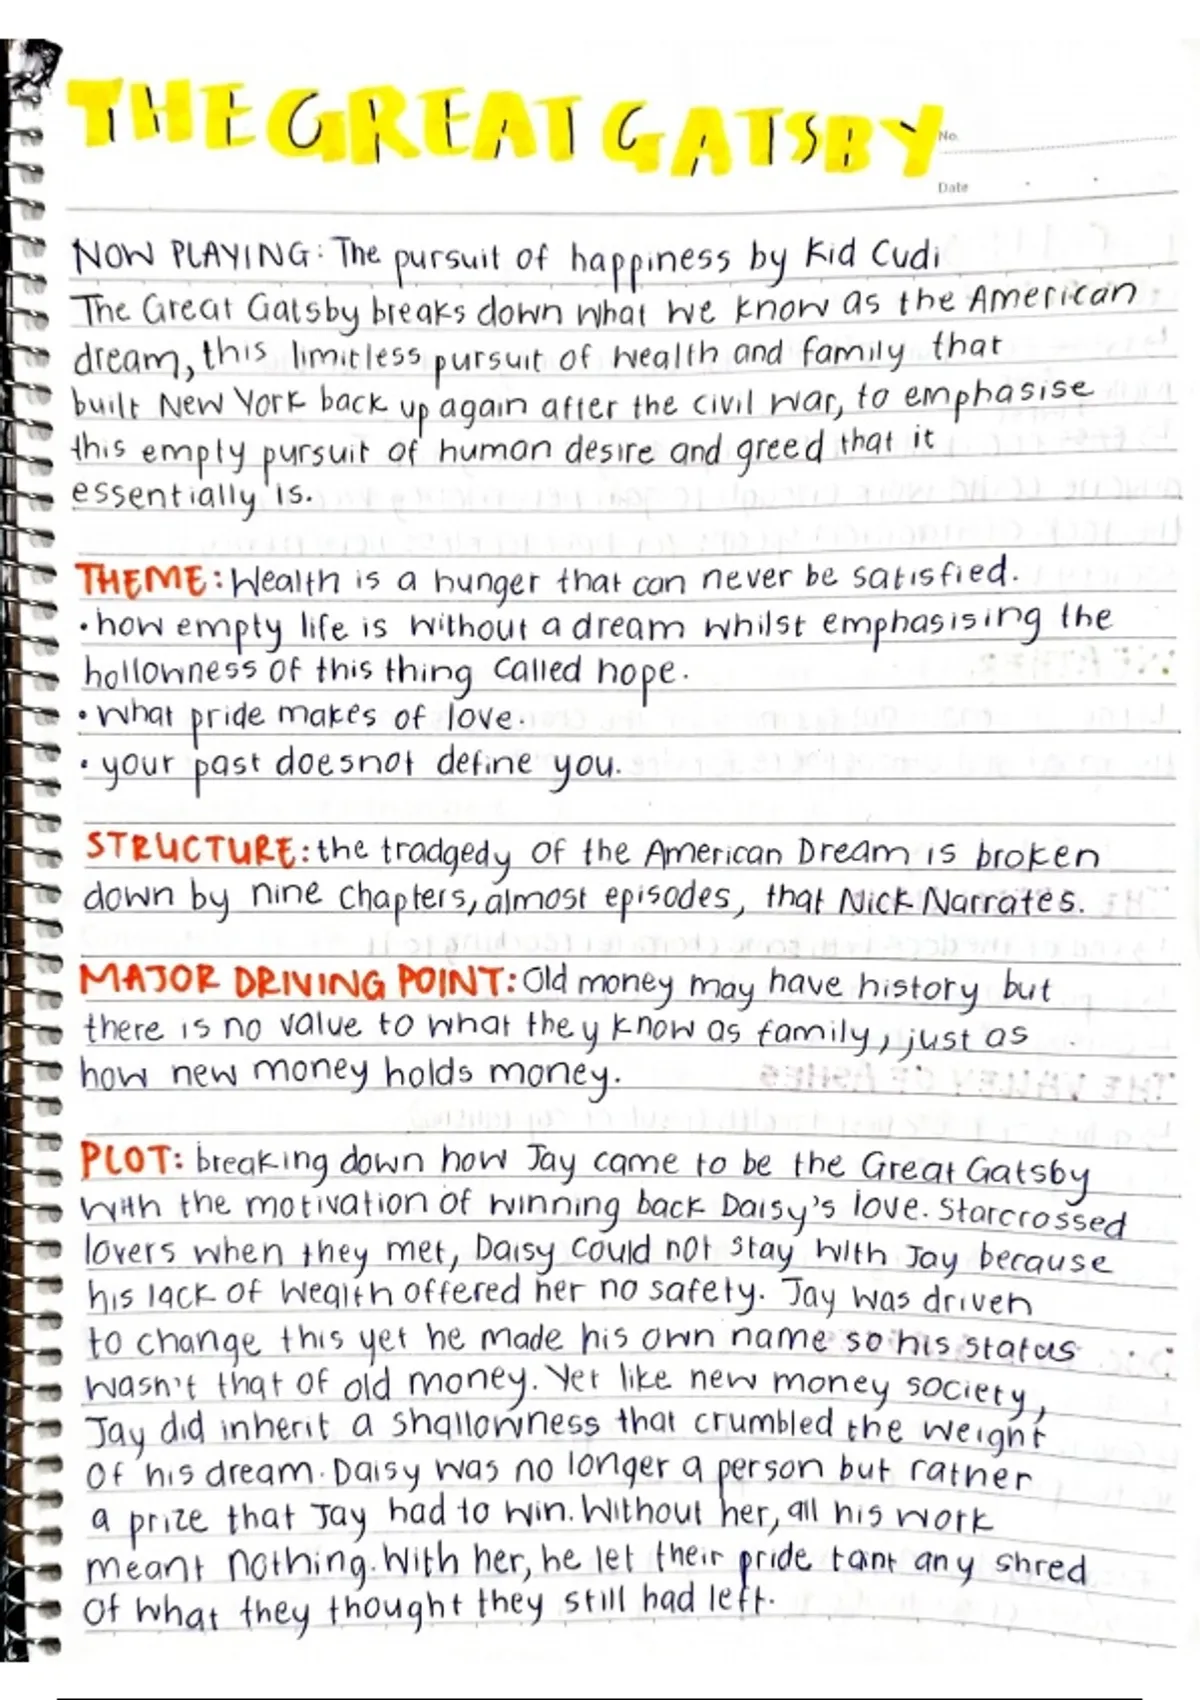 THE GREAT GATSBY
No.
Date
NOW PLAYING: The pursuit of happiness by Kid Cudi
The Great Gatsby breaks down what we know as the American
dream, this limitless pursuit of wealth and family that
built New York back up again after the civil war, to emphasise
this empty pursuit of human desire and greed that it
essentially is.
THEME: Wealth is a hunger that can never be satisfied.
• how empty life is without a dream whilst emphasising the
hollowness of this thing called hope.
• what pride makes of love.
• your past doesnot define you.
STRUCTURE: the tradgedy of the American Dream is broken
down by nine chapters, almost episodes, that Nick Narrates.
MAJOR DRIVING POINT: Old money may have history but
there is no value to what they know as family, just as
how new money holds money.
PLOT: breaking down how Jay came to be the Great Gatsby
with the motivation of winning back Daisy's love. Starcrossed
lovers when they met, Daisy could not stay with Jay because
his lack of wealth offered her no safety. Jay was driven
to change this yet he made his own name so his status
wasn't that of old money. Yet like new money society,
Jay did inherit a shallowness that crumbled the weight
of his dream. Daisy was no longer a person but rather
a prize that Jay had to win. Without her, all his work
meant nothing. With her, he let their pride taint any shred
of what they thought they still had left.